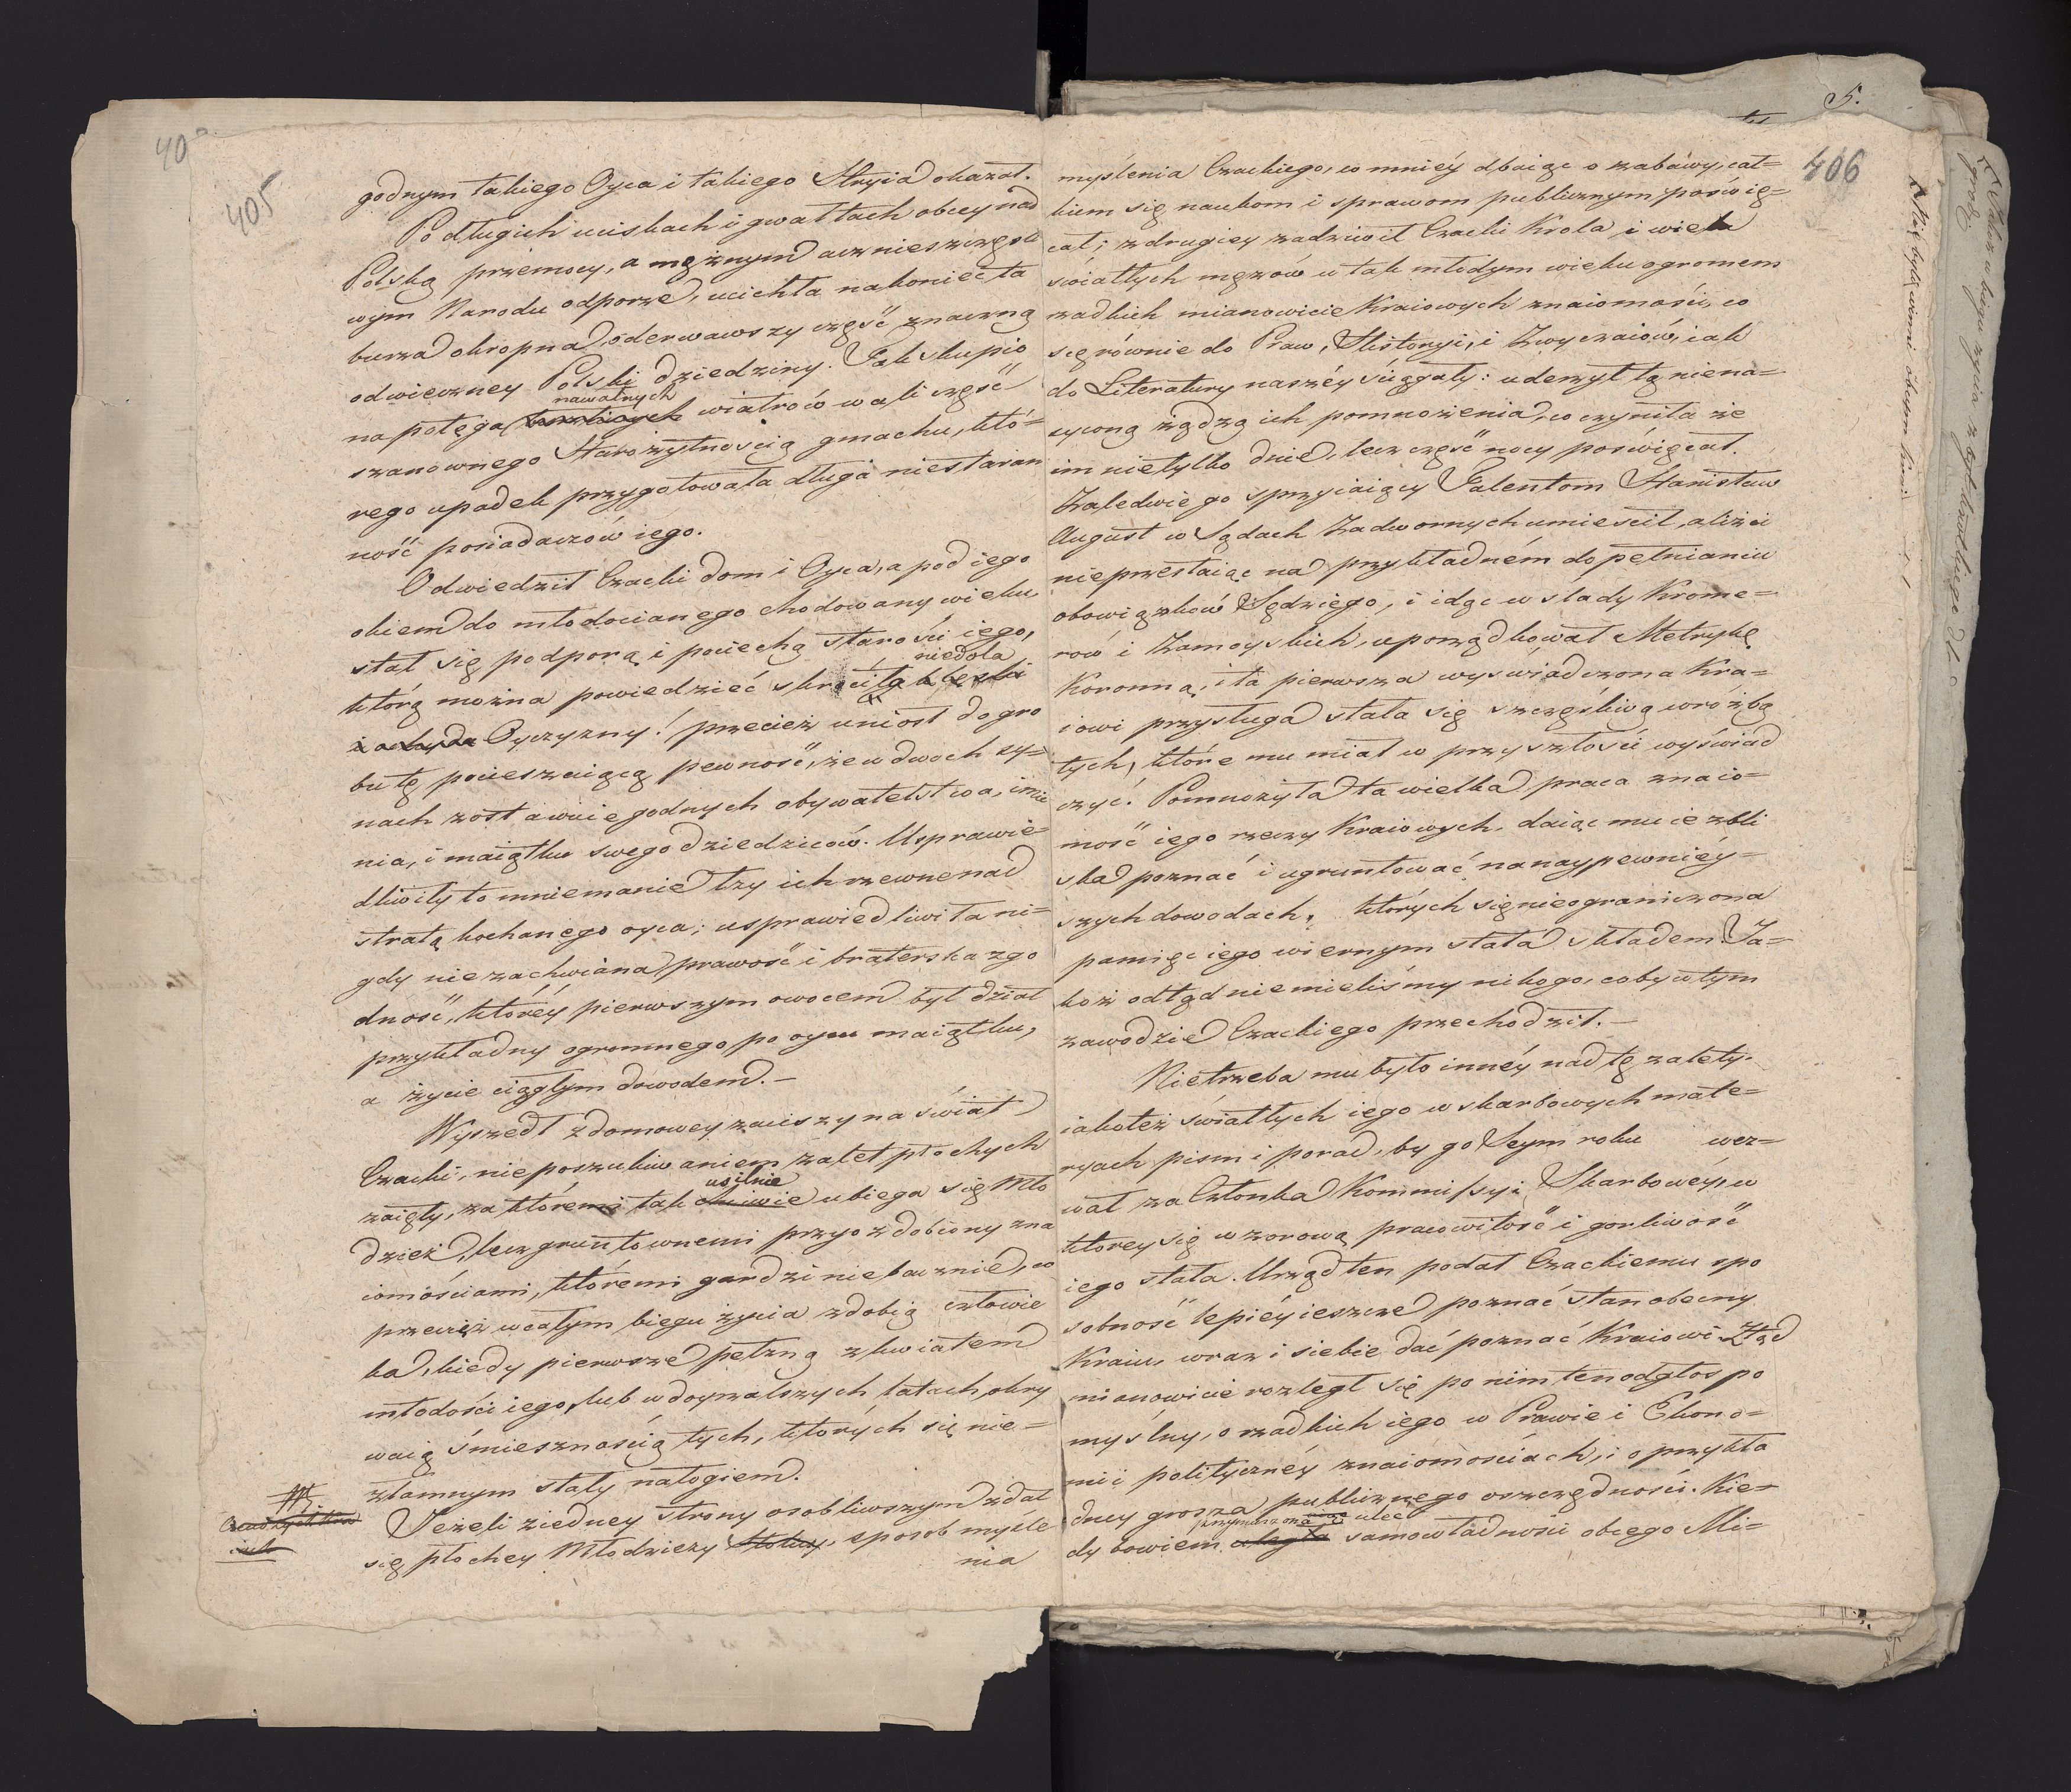 405
godnym takiego Oyca i takiego Stryia okazał.
Po długich uciskach i gwałtach obcey nad
Polską przemocy, a mężnym acz nieszczęsli
wym Narodu odporze, ucichła nakoniec ta
burza okropna, oderwawszy część znaczną
odwieczney Polski dziedziny. Tak skupio
nawalnych
na potęga wiatrów wali część
szanownego Starożytnością gmachu, któ=
rego upadek przygotowała długa niestaran
ność posiadaczów iego.
Odwiedził Czacki dom i Oyca, a pod iego
okiem do młodocianego chodowany wieku
stał się podporą i pociechą starości iego,
niedola
którą można powiedzieć skróciła klęska
i ochyda Oyczyzny! przecież uniosł do gro
bu tę pocieszaiącą pewność, że w dwoch sy=
nach zostawuie godnych obywatelstwa, imie
nia, i maiątku swego dziedziców. Usprawie=
dliwiły to mniemanie łzy ich rzewne nad
stratą kochanego oyca; usprawiedliwiła ni=
gdy niezachwiana prawość i braterska zgo
dność, któréy pierwszym owocem był dział
przykładny ogromnego po oycu maiątku,
a życie ciągłym dowodem.—
Wyszedł z domowey zaciszy na świat
Czacki, nie poszukiwaniem zalet płochych
usilnie
zaięty, za któremi tak chciwie ubiega się Mło
dzież, lecz gruntownemi przyozdobiony zna
iomościami, któremi gardzi niebacznie, co
przecięż w całym biegu życia zdobią człowie
ka, kiedy pierwsze pełzną z kwiatem
młodości iego, lub w doyrzalszych latach, okry
waią śmiesznością tych, których się nie=
złamnym stały nałogiem.
Jeżeli ziedney strony osobliwszym zdał
się płochey Młodzieży sposob myśle
nia
406
5.
myślenia Czackiego, co mniéy dbaiąc o zabawy, cał=
kiem się naukom i sprawom publicznym poświę=
cał; z drugiey zadziwił Czacki Krola i wielu
światłych mężów w tak młodym wieku ogromem
rzadkich mianowicie Kraiowych znaiomości, co
się równie do Praw, Historyi, i Zwyczaiów, iak
do Literatury naszéy ściągały: uderzył tą niena=
syconą żądzą ich pomnożenia, co czyniła że
im nietylko dnie, lecz część nocy poświęcał.
Zaledwie go sprzyiaiący Talentom Stanisław
August w Sądach Zadwornych umieścił, aliści
nieprzestaiąc na przykładném dopełnianiu
obowiązków Sędziego, i idąc w slady Krome=
rów i Zamoyskich, uporządkował Metrykę
Koronną, i ta pierwsza wyswiadczona Kra=
iowi przysługa stała się szczęśliwą wróżbą
tych, które mu miał w przyszłości wyświad
czyć. Pomnożyła ta wielka praca znaio=
mość iego rzeczy Kraiowych, daiąc mu ie zbli
ska poznać i ugruntować na naypewniéy=
szych dowodach, których się nieograniczona
pamięć iego wiernym stała składem. Ja=
koż odtąd niemieliśmy nikogo, coby w tym
zawodzie Czackiego przechodził.—
Nietrzeba mu było innéy nad tę zalety.
iakoteż światłych iego w skarbowych mate=
ryach pism i porad, by go Seym roku wez=
wał za Członka Kommissyi Skarbowéy, w
ktorey się wzorową pracowitość i gorliwość
iego stała. Urząd ten podał Czackiemu spo
sobność lepiéy ieszcze poznać stan obecny
Kraiu, wraz i siebie dać poznać Kraiowi. Ztąd
mianowicie rozległ się po nim ten odgłos po
myślny, o rzadkich iego w Prawie i Ekono=
mii polityczney znaiomościach, i o przykła
dney grosza publicznego oszczędności. Kie=
przymuszona uledz
dy bowiem uległa samowładności obcego Mi=